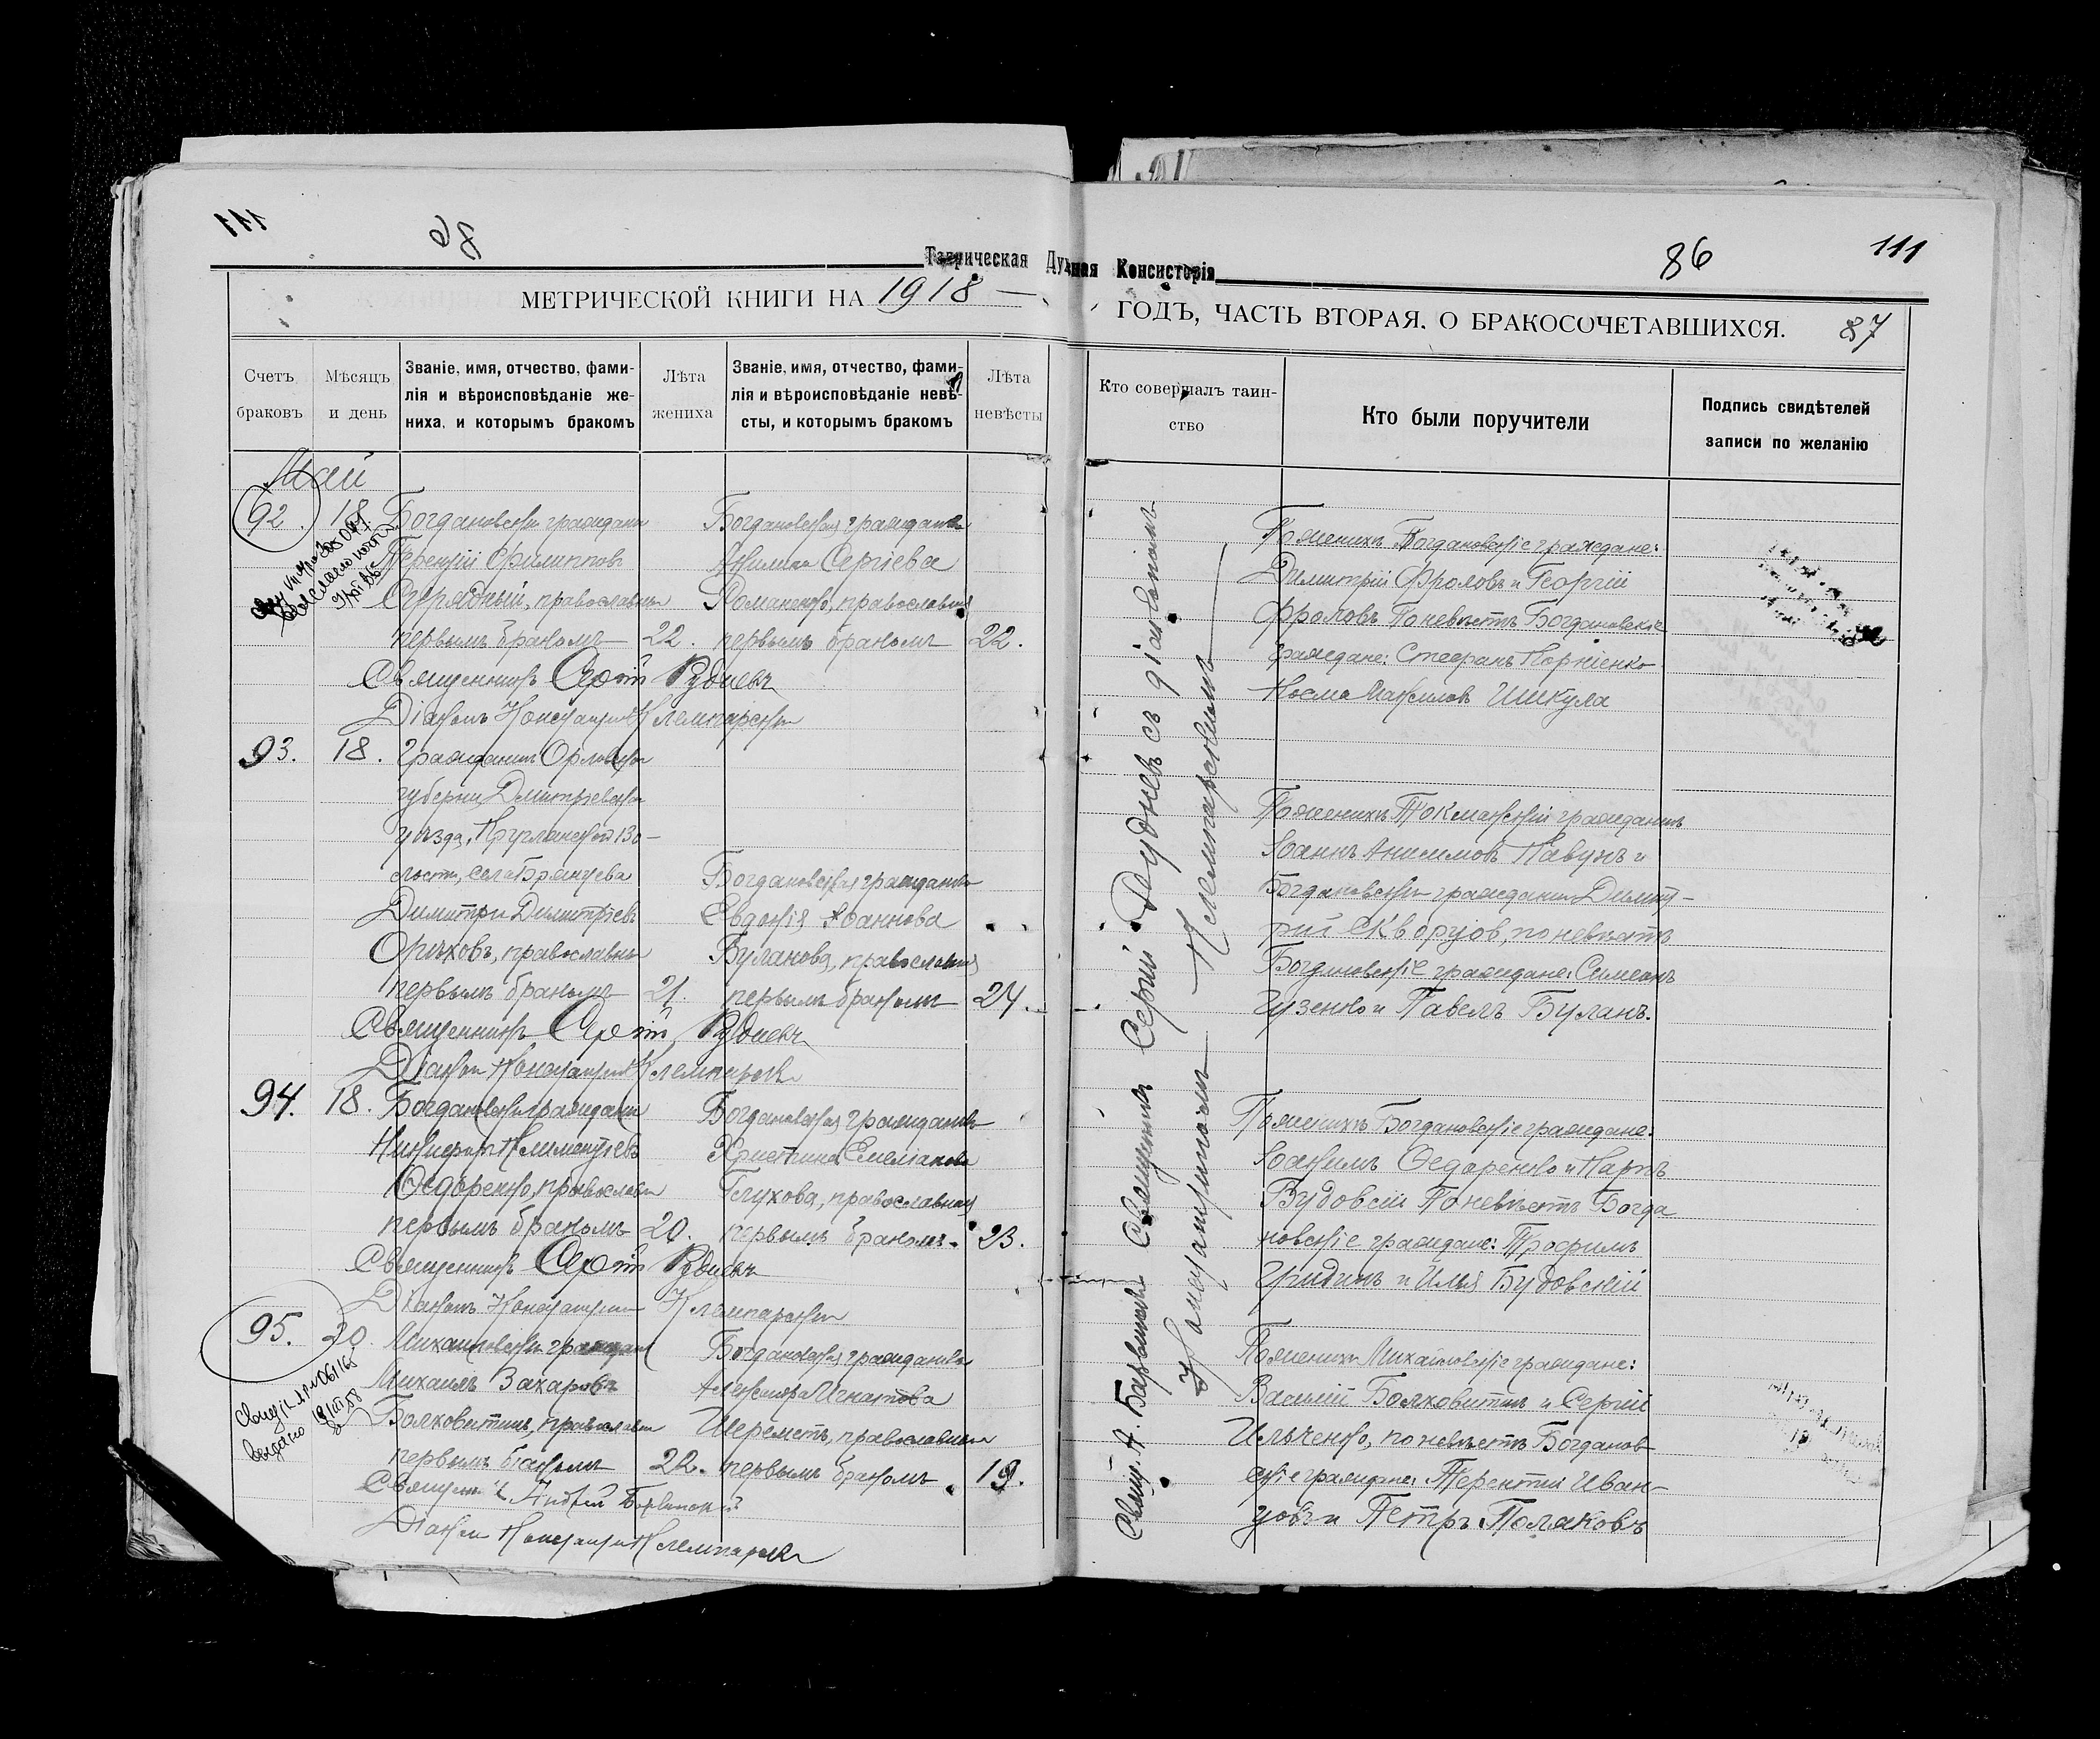 111
86
86
111
Таврическая Духовная Консисторія
МЕТРИЧЕСКОЙ КНИГИ НА 1918
ГОДЪ, ЧАСТЬ ВТОРАЯ, О БРАКОСОЧЕТАВШИХСЯ.
87
Счетъ браковъ
Мѣсяцъ и день
Званіе, имя, отчество, фами-
лія и вѣроисповѣданіе же-
ниха, и которымъ бракомъ
Лѣта жениха
Званіе, имя, отчество, фами-
лія и вѣроисповѣданіе невѣ-
сты, и которымъ бракомъ
Лѣта невѣсты
Кто совершалъ таин-
ство
Кто были поручители
Подпись свидѣтелей
записи по желанію
Май
92. 18 Богдановскій гражданинъ
Терентій Филипповъ
православный
первымъ бракомъ 22.
Богдановская гражданка
Сергіева
Романенко, православная
первымъ бракомъ 22.
Священникъ Сергій Рудневъ
Діаконъ Константинъ Клемпарскій
93. 18. Гражданинъ Орловской
губерніи Дмитріевскаго
уѣзда, во-
лости, села Брянцева
Димитрій Димитріевъ
Орѣховъ, православный
первымъ бракомъ 21.
Богдановская гражданка
Евдокія Іоаннова
Буланова, православная
первымъ бракомъ 24.
Священникъ Сергій Рудневъ
Діаконъ Константинъ Клемпарскій
94. 18. Богдановскій гражданинъ
Никифоръ Климентіевъ
Федоренко, православный
первымъ бракомъ 20.
Богдановская гражданка
Христина Емеліанова
Глухова, православная
первымъ бракомъ 23.
Священникъ Сергій Рудневъ
Діаконъ Константинъ Клемпарскій
95. 20. Михайловскій гражданинъ
Михаилъ Захаровъ
Болховитинъ, православный
первымъ бракомъ 22.
Богдановская гражданка
Александра Игнатова
Шереметъ, православная
первымъ бракомъ 19.
Священникъ Андрей Барвинскій
Діаконъ Константинъ Клемпарскій
Свящ. А. Барвинскій Священникъ Сергій Рудневъ съ діакономъ
Константиномъ Клемпарскимъ
По женихѣ Богдановскіе граждане:
Димитрій Фроловъ и Георгій
Фроловъ По невѣстѣ Богдановскіе
граждане: Стефанъ Корніенко
Косма Шикула
По женихѣ Токмакскій гражданинъ
Іоаннъ Анисимовъ Павунъ и
Богдановскій гражданинъ Димит-
рій Скворцов, по невѣстѣ
Богдановскіе граждане: Симеонъ
Гузенко и Павелъ Буланъ.
По женихѣ Богдановскіе граждане:
Іоакимъ Федоренко и Карпъ
Будовскій По невѣстѣ Богда
новскіе граждане: Трофимъ
Гридинъ и Илья Будовскій
По женихѣ Михайловскіе граждане:
Василій Болховитинъ и Сергій
Ильченко, по невѣстѣ Богданов-
скіе граждане: Терентій Иван-
цовъ и Петръ Поляковъ